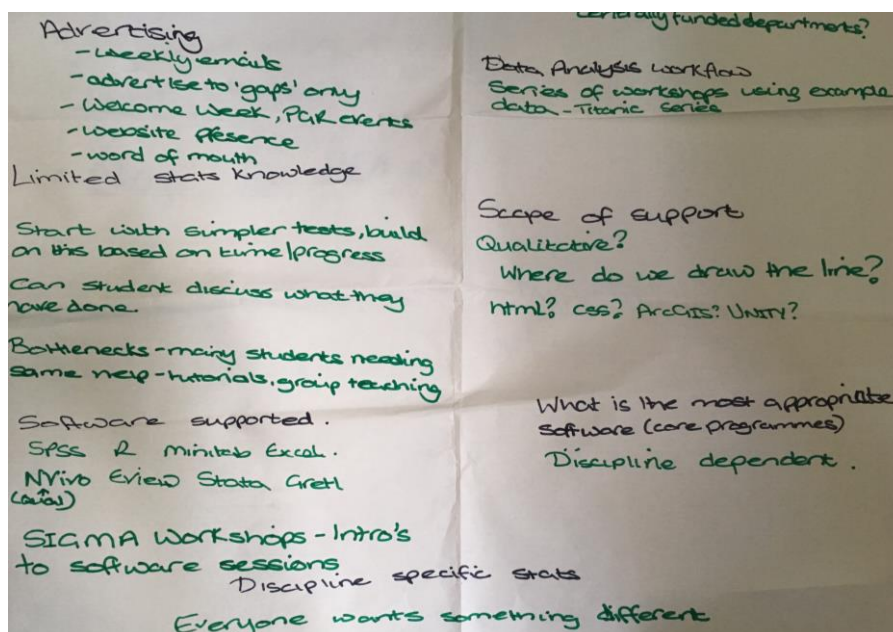 Advertising
- weekly emails
- advertise to 'gaps' only
- Welcome Week, PGR events
- website presence
- word of mouth
Limited stats knowledge
Start with simpler tests, build
on this based on time/progress
Can student discuss what they
have done.
Bottlenecks - many students needing
same help - tutorials, group teaching
Software supported.
SPSS R Minitab Excel.
NVivo Eview Stata Gretl
(qual)
SIGMA Workshops - Intro's
to software sessions
Discipline specific stats
Everyone wants something different
funded departments?
Data Analysis workflow
Series of workshops using example
data - Titanic series
Scope of support
Qualitative?
Where do we draw the line?
html? css? ArcGIS? UNITY?
What is the most appropriate
software (core programmes)
Discipline dependent.